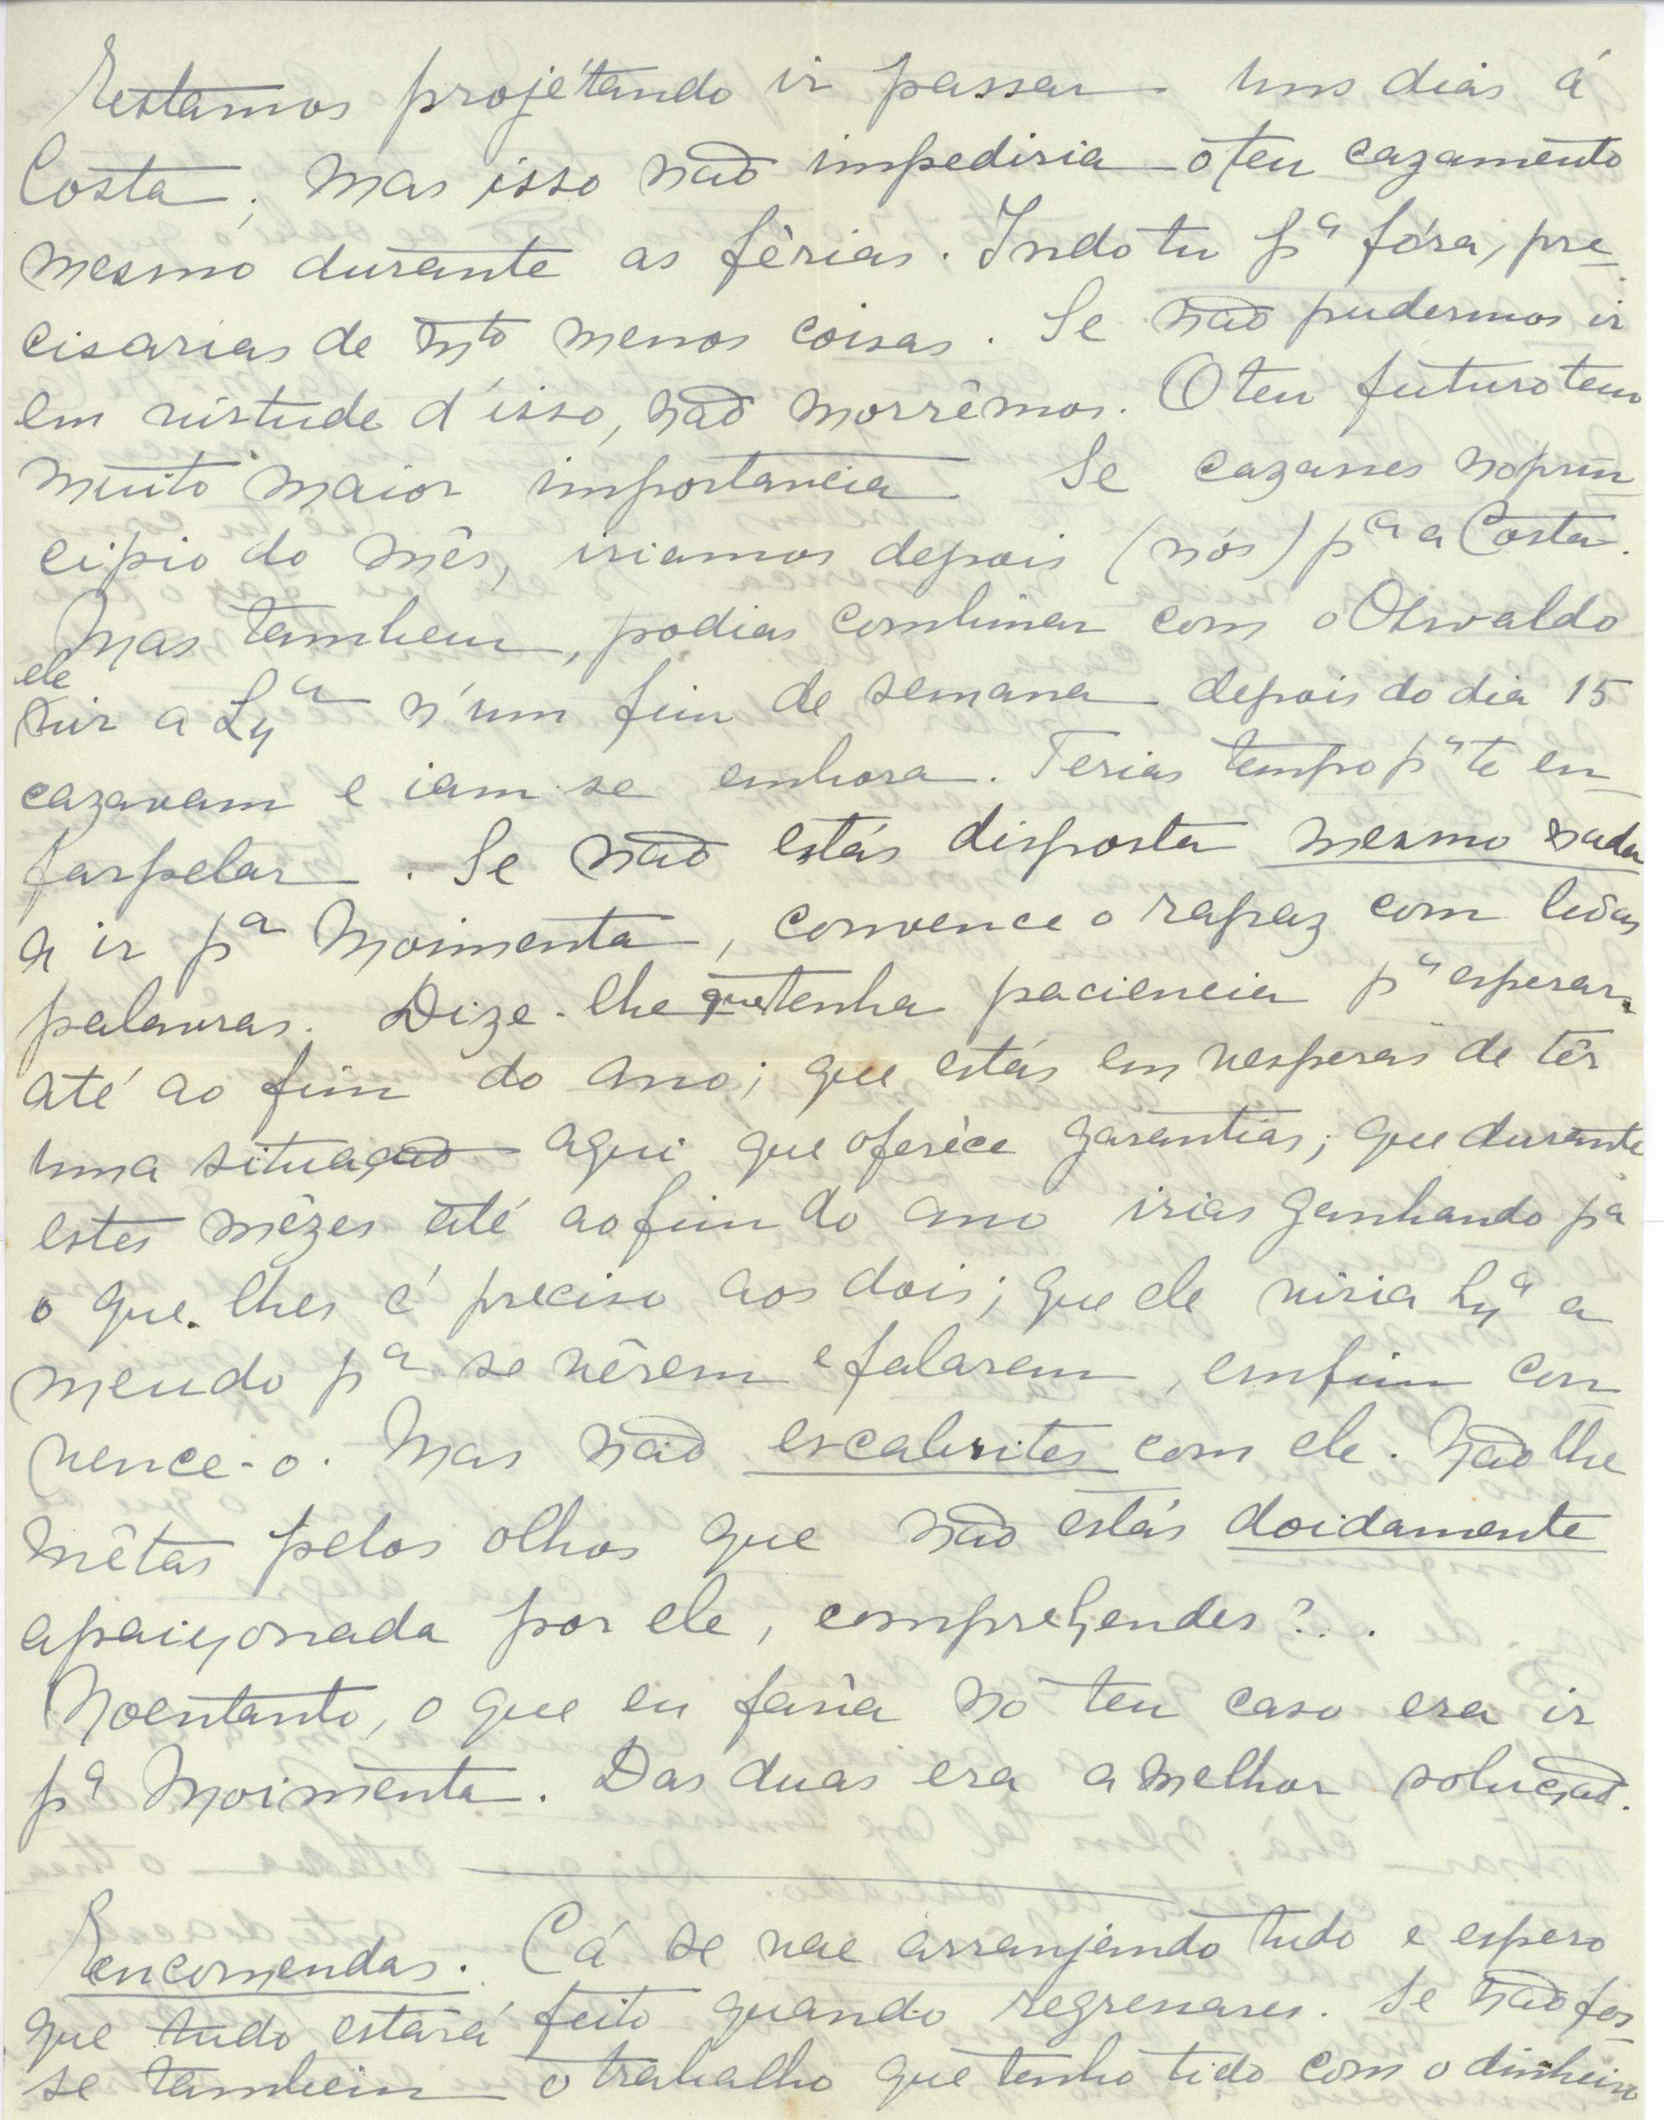 Estamos projétando ir passar uns dias á
Costa; mas isso não impediria o teu cazamento
mesmo durante as férias. Indo tu pª fóra, pre-
cisarias de mto menos coisas. Se não pudermos ir
em virtude d'isso, não morrêmos. O teu futuro tem
muito maior importancia. Se cazasses no prin-
cipio do mês, iriamos depois (nós) pª a Costa.
Mas tambem, podias combinar com o Oswaldo
ele
vir a Lxª n'um fim de semana depois do dia 15
cazavam e iam-se embora. Terias tempo pª te en-
farpelar. Se não estás disposta mesmo nada
a ir pª Moimenta, convence o rapaz com bôas
palavras. Dize-lhe que tenha paciencia pª esperar
até ao fim do ano; que estás em vesperas de têr
uma situação aqui que oferéce garantias; que durante
estes mêzes até ao fim do ano irias ganhando pª
o que lhes é preciso aos dois; que ele viria Lxª a
meudo pª se vêrem e falarem, emfim con-
vence-o. Mas não escabrites com ele. Não lhe
mêtas pelos olhos que não estás doidamente
apaixonada por ele, comprehendes?..
Noentanto, o que eu faria no teu caso era ir
pª Moimenta. Das duas era a melhor solução.
Encomendas. Cá se vae arranjando tudo e espero
que tudo estará feito quando regressares. Se não fos-
se tambem o trabalho que tenho tido com o dinheiro